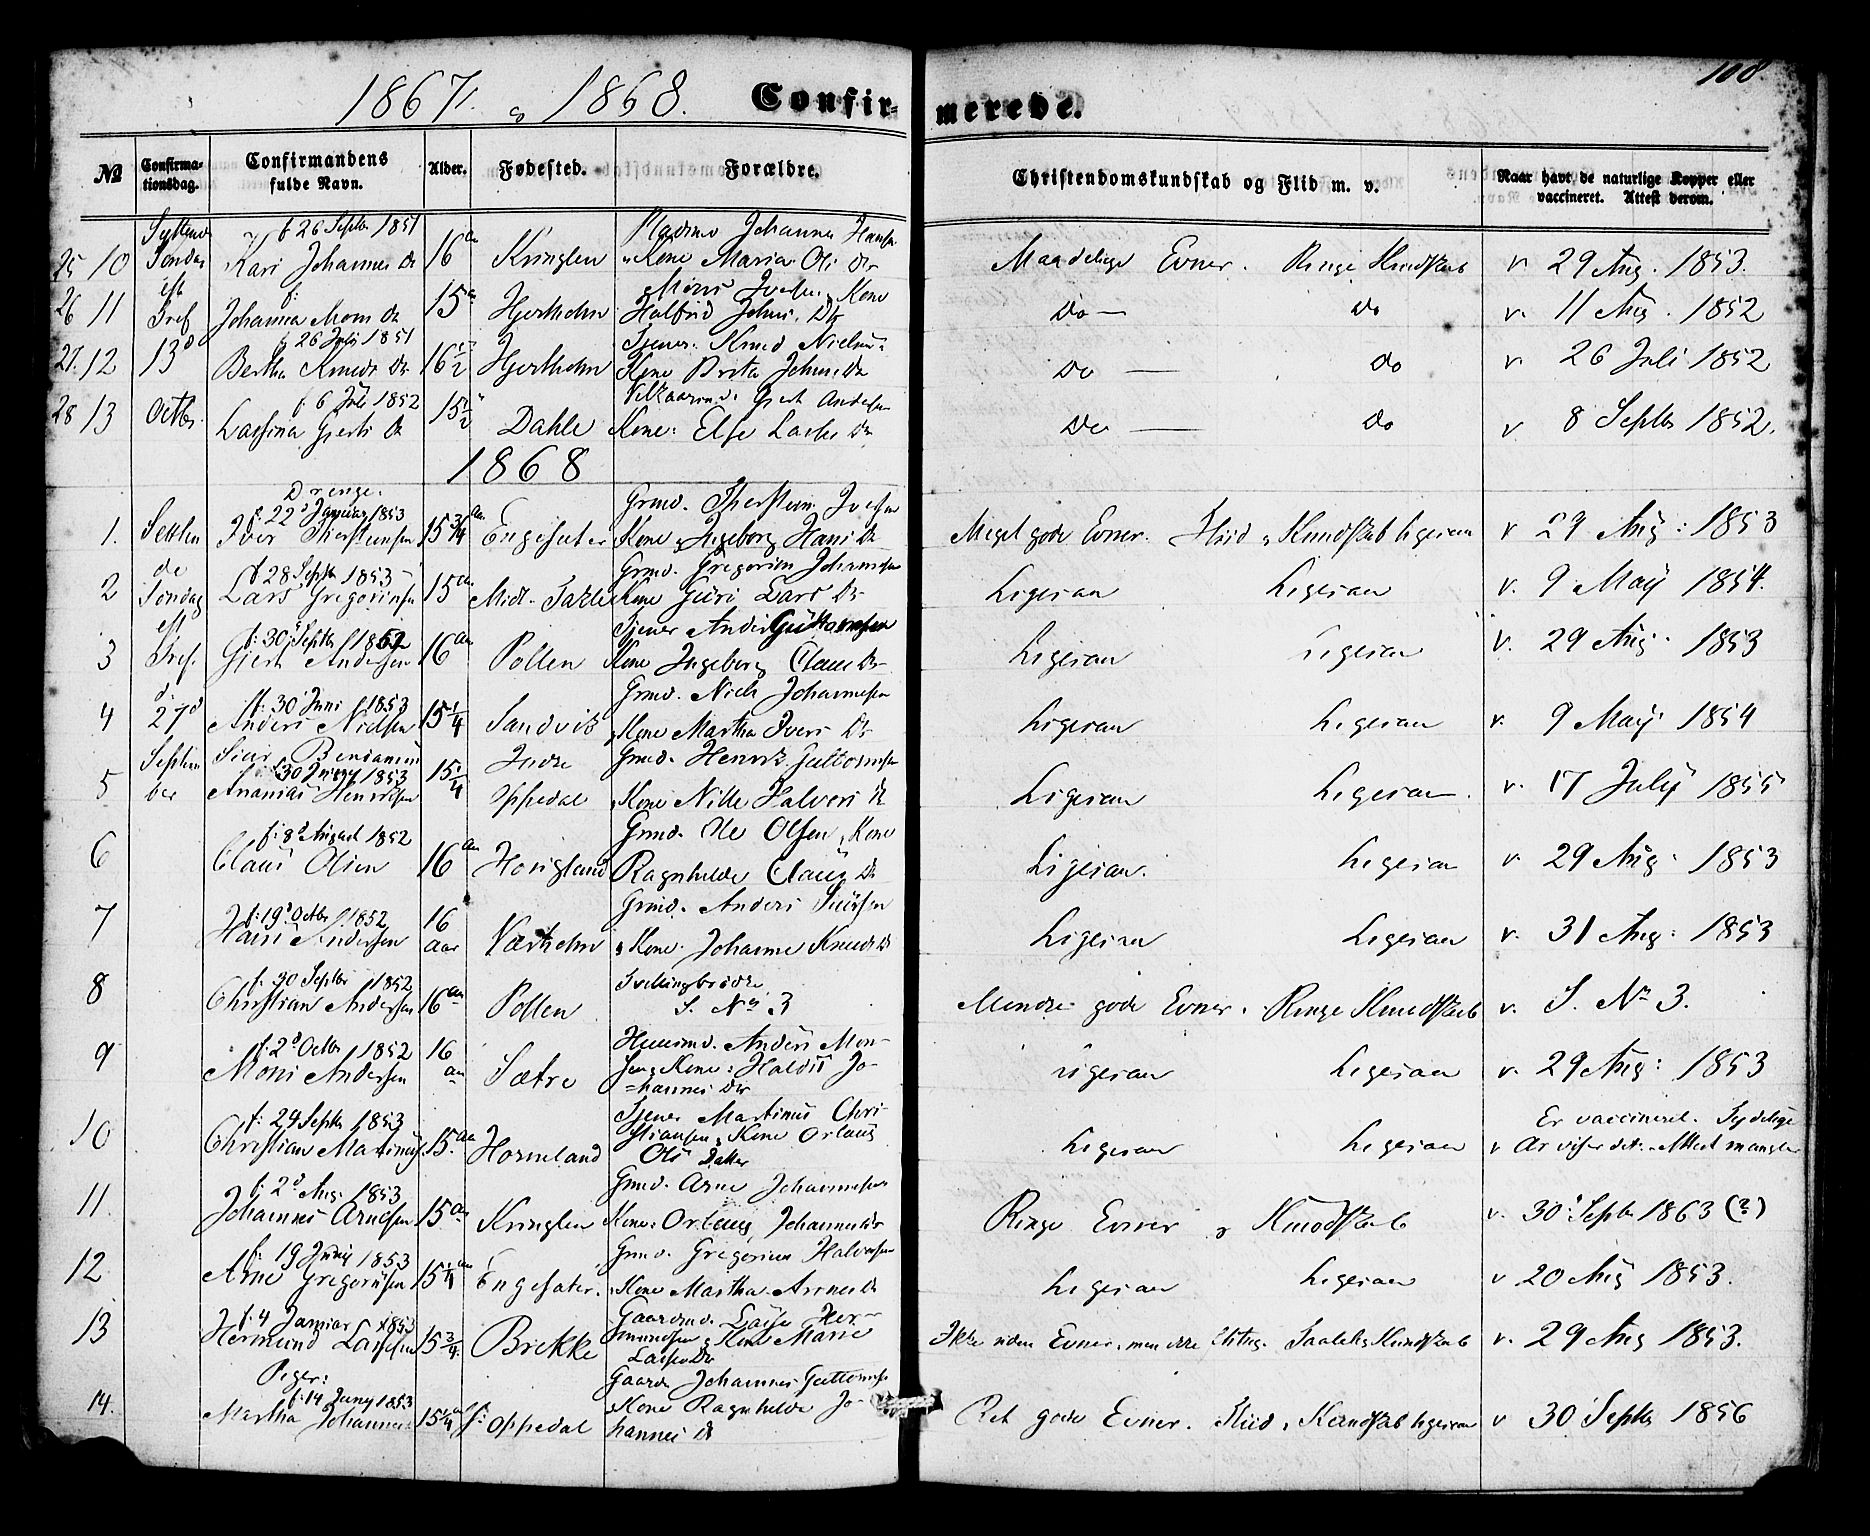 1867. & 1868. Confirmerede. 108
№ Confirmationsdag. Confirmandens fulde Navn. Alder. Fødested. Forældre. Christendomskundskab og Flid m. v. Naar havt de naturlige Kopper eller vaccineret. Attest derom.
25 10 Søndag f 26 Septbr 1851 Kari Johannes Dr 16 Aar Kringlen Johannes Hansen
Kone Maria Ols Dr Maadelige Evner. Ringe Kundskab v 29 Aug. 1853.
26 11 Johanna Mons Dr 15 Hjertholm Mons Iversen, Kone
Halfrid Johns. Dr Do — Do v. 11 Aug. 1852
27. 12 13d f 26 Juli 1851 Bertha Knuds Dr 16 1/2 Hjertholm Tjener. Knud Nielsen
Kone Brita Johns Dr Do — Do v 26 Juli 1852
28 13 Octbr. f. 6 Juli 1852 Lassina Gjerts Dr 15 1/2 Dahle Gjert Andersen
Kone: Else Lasses Dr Do — Do v 8 Septbr 1852.
1868
Drenge.
1. f: 22d Januar 1853 Iver Thorsteinsen 15 3/4 Aar Engesæter Grmd. Thorstein Iversen
Kone Ingeborg Hans Dr Meget gode Evner. Fliid & Kundskab ligesaa v 29 Aug: 1853
2 de Søndag f 28 Septbr 1853 Lars Gregoriusen 15 Aar Midt-Takle Grmd. Gregorius Johannesen
Kone Guri Lars Dr Ligesaa Ligesaa v. 9 May 1854.
3 Tref. f: 30 Septbr 1852 Gjert Andersen 16 Aar Pollen Tjener Anders Guttormsen
Kone Ingeborg Claus Dr Ligesaa Ligesaa v. 29 Aug. 1853
4 27d f: 30 Juni 1853 Anders Nielsen 15 1/4 Sandvik Grmd. Niels Johannesen
Kone Martha Ivers Dr Ligesaa Ligesaa v. 9 May. 1854
5 September Benjamin
f 30 1853 Ananias Henriksen 15 1/4 Indre Oppedal Grmd. Henrik Guttormsen
Kone Nille Halvors Dr Ligesaa Ligesaa. v. 17 July 1855
6 f: 8d August 1852 Claus Olsen 16 Aar Grmd. Ole Olsen, Kone
Ragnhilde Claus Dr Ligesaa. Ligesaa v. 29 Aug. 1853
7 f: 19d Octbr 1852 Hans Andersen 16 Aar Værholm Grmd. Anders Siursen
Kone. Johanne Knuds Dr Ligesaa Ligesaa v. 31 Aug: 1853
8 f. 30 Septbr 1852 Christian Andersen 16 Aar Pollen Tvillingbroder
S. No 3 Mindre gode Evner. Ringe Kundskab v. S. No 3.
9 f. 2d Octbr 1852 Mons Andersen 16 Aar Sætre Huusmd. Anders Mon-
sen, Kone: Haldis Jo-
hannes Dr Ligesaa Ligesaa v. 29 Aug: 1853
10 f: 24 Septbr 1853 Christian Martinus 15 Aar Hormeland Tjener Martinus Chri-
stiansen, Kone Orlaug
Ols Datter Ligesaa Ligesaa v Er vaccineret. Tydelige
Ar viser det. Attest mangler
11. f. 2d Aug. 1853 Johannes Arnesen 15 Aar Kringlen Grmd. Arne Johannesen
Kone: Orlaug Johannes Dr Ringe Evner & Kundskab v. 30 Septbr 1863 (?)
12 f: 19 Juny 1853 Arne Gregoriusen 15 1/4 Aar Engesæter. Grmd. Gregorius Halvorsen
Kone Martha Arnes Dr Ligesaa Ligesaa v 20 Aug 1853.
13 f. 4 Januar 1853 Hermund Lassesen 15 3/4 Brekke Gaardmd. Lasse Her-
mundsen & Kone Marie
Lasses Dr Ikke uden Evner, men ikke Kundskab v. 29 Aug 1853.
Piger:
14. f: 14 Juny 1853 Martha Johannes 15 1/4 Oppedal Johannes Guttormsen
Kone Ragnhilde Jo-
hannes Dr Ret gode Evner. Fliid & Kundskab ligesaa v 30 Septbr 1856